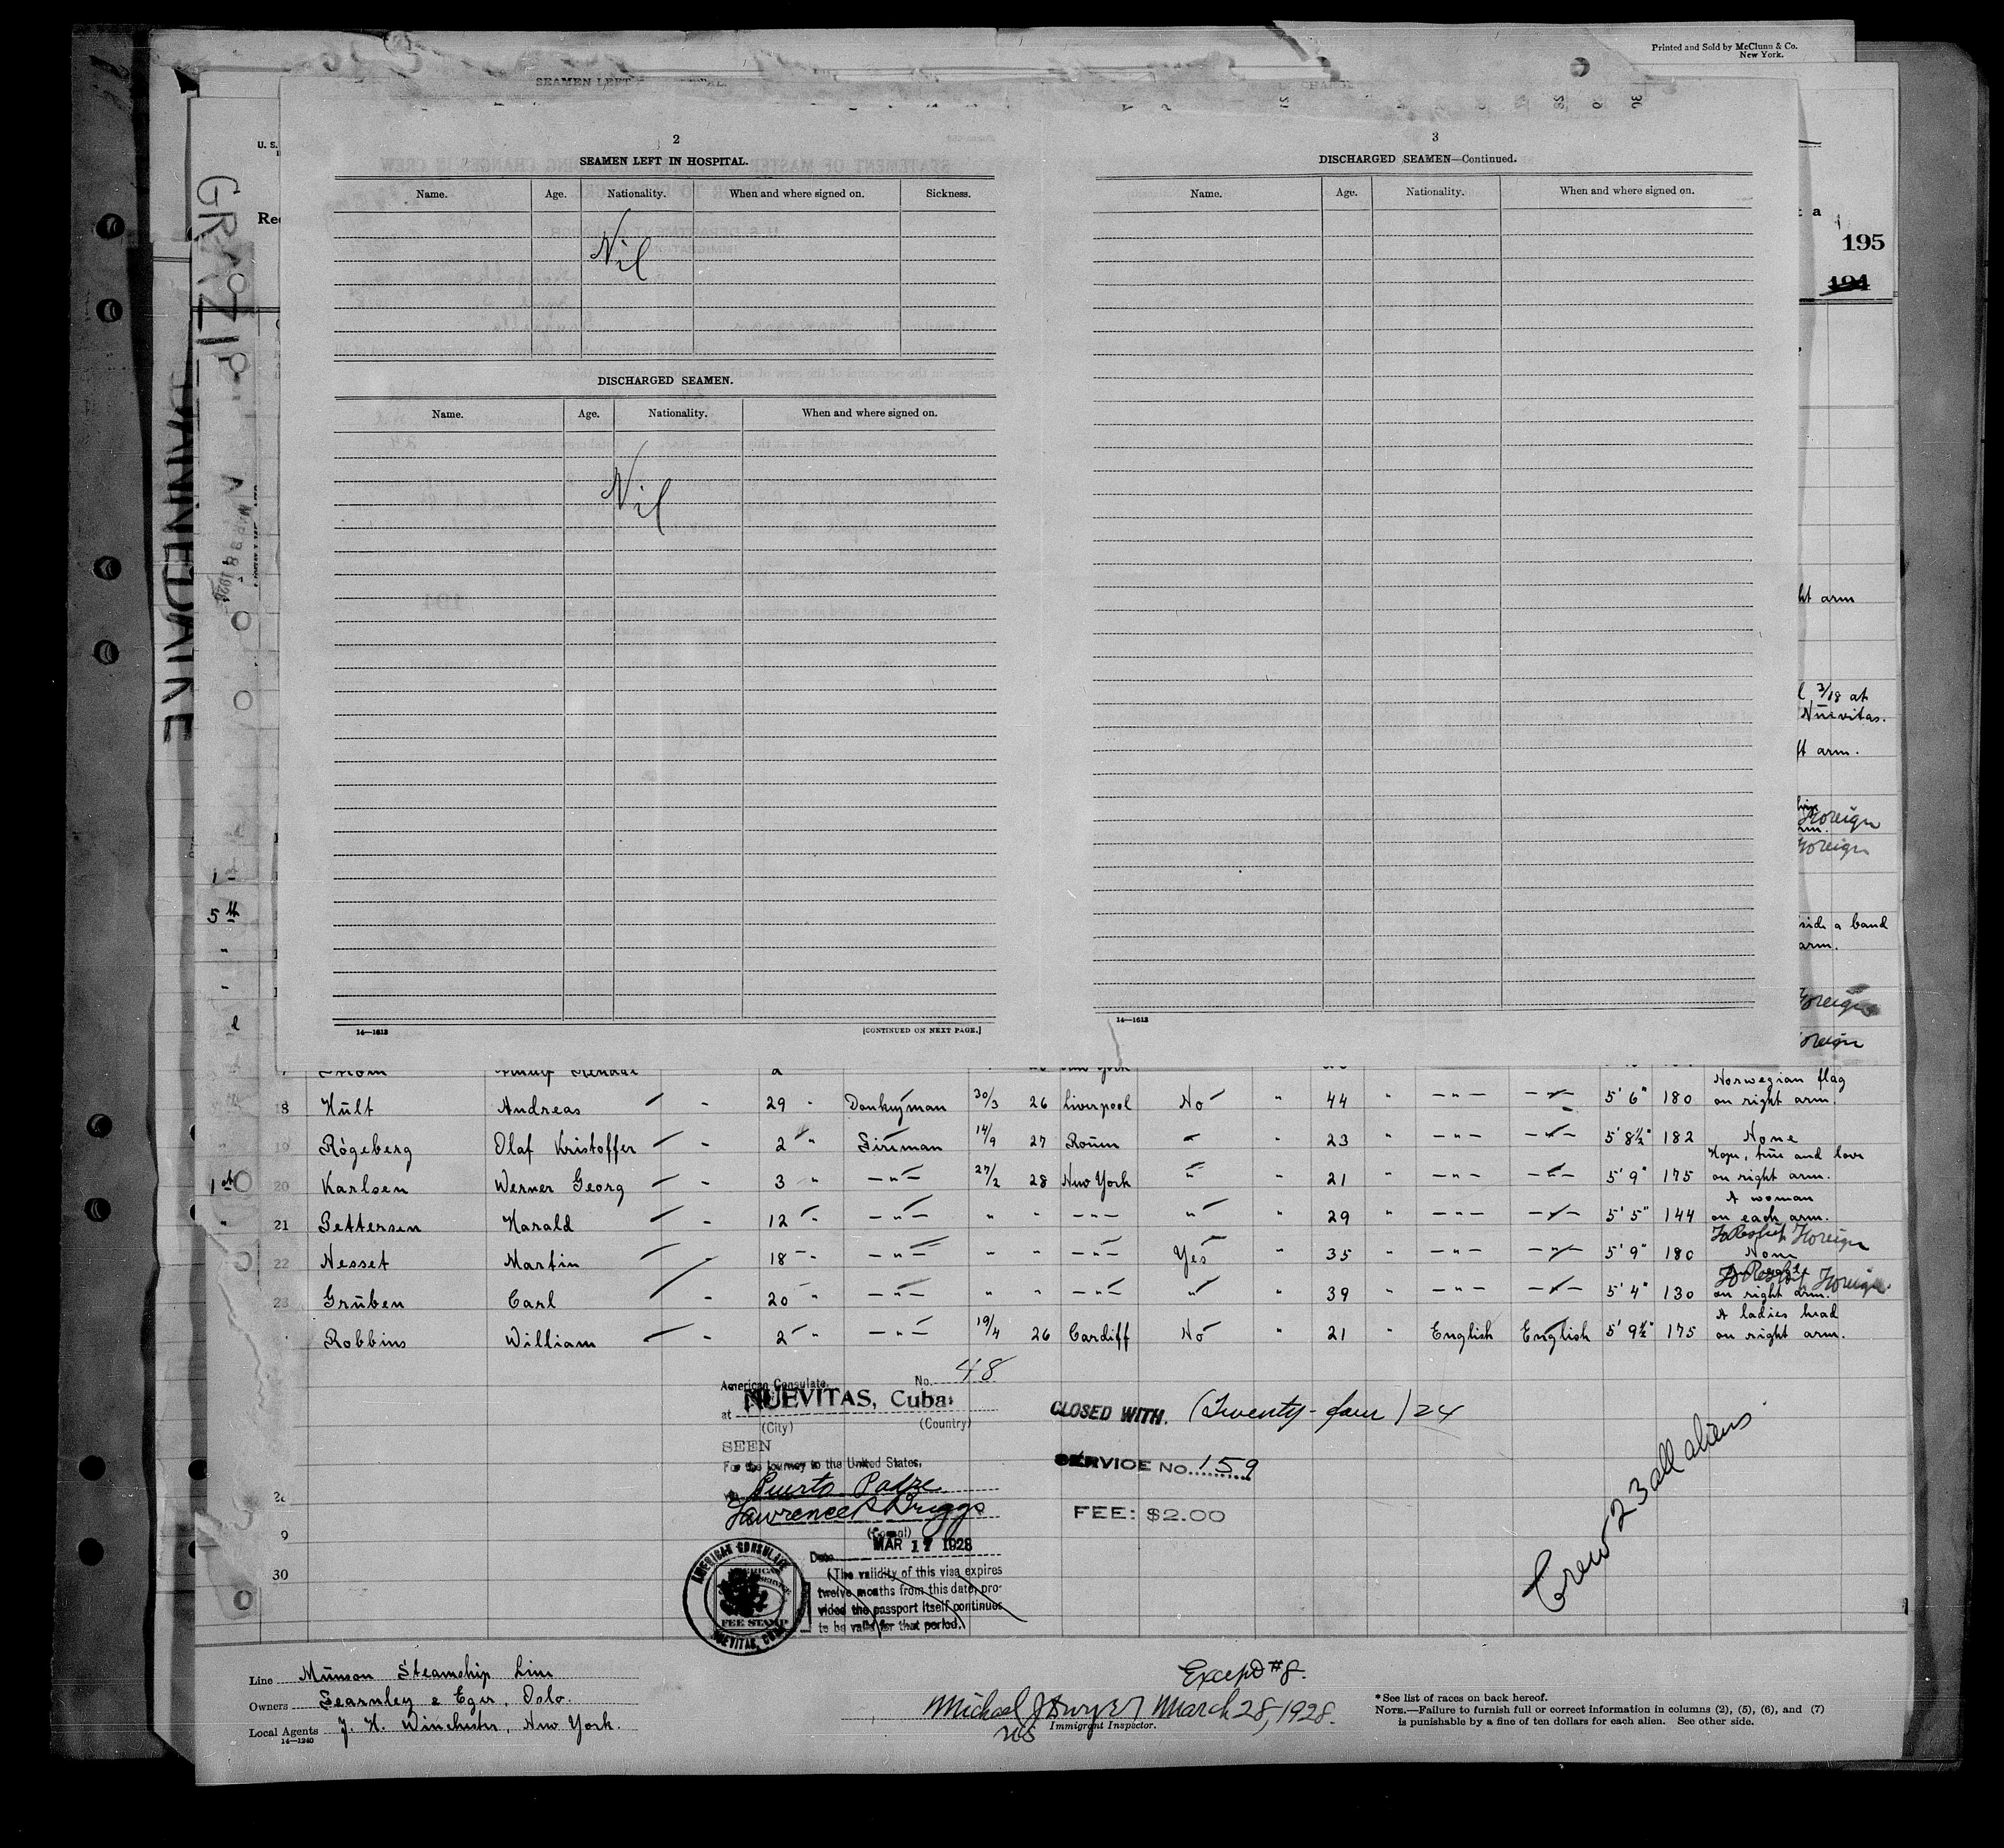 Printed and Sold by McClunn & Co.
New York.
SEAMEN LEFT
U. S.
195
194
2
SEAMEN LEFT IN HOSPITAL.
Name. Age. Nationality. When and where signed on. Sickness.
Nil
DISCHARGED SEAMEN.
Name. Age. Nationality. When and where signed on.
Nil
14—1613 [CONTINUED ON NEXT PAGE.]
3
DISCHARGED SEAMEN—Continued.
Name. Age. Nationality. When and where signed on.
14—1613
arm
3/18 at
Nuevitas.
arm.
Foreign
Foreign
side a band
arm.
Foreign
Norwegian flag
18 Hult Andreas 29 " Donkeyman 30/3 26 Liverpool No " 44 " — " — — " — 5' 6" 180 on right arm.
19 Rögeberg Olaf Kristoffer 2 " Fireman 14/9 27 Rouen " 23 " — " — — " — 5' 8½" 182 None
Hope, true and love
1st 20 Karlsen Werner Georg 3 " — " — 27/2 28 New York " " 21 " — " — — " — 5' 9" 175 on right arm.
A woman
" 21 Pettersen Harald 12 " — " — " " — " — " " 29 " — " — — " — 5' 5" 144 on each arm.
Foreign
22 Nesset Martin 18 " — " — " " — " — Yes " 35 " — " — — " — 5' 9" 180 None
Foreign.
23 Gruben Carl 20 " — " — " " — " — " " 39 " — " — — " — 5' 4" 130 on right arm.
A ladies head
Robbins William 2 " — " — 19/4 26 Cardiff No " 21 " English English 5' 9½" 175 on right arm.
American Consulate. No. 48
at NUEVITAS, Cuba.
(City) (Country)
SEEN
For the journey to the United States.
Puerto Padre
Lawrence Briggs
(Consul)
Date MAR 17 1928
(The validity of this visa expires
twelve months from this date, pro-
vided the passport itself continues
to be valid for that period.)
AMERICAN CONSULATE
FEE STAMP
NUEVITAS, CUBA
CLOSED WITH. (Twenty-four) 24
SERVICE NO. 159
FEE: $2.00
Crew 23 all aliens
9
30
Line Munson Steamship Line
Owners Fearnley & Eger, Oslo.
Local Agents J. H. Winchester, New York.
14—1240
Except #8.
Michael J Dwyer March 28, 1928.
Immigrant Inspector.
* See list of races on back hereof.
NOTE.—Failure to furnish full or correct information in columns (2), (5), (6), and (7)
is punishable by a fine of ten dollars for each alien. See other side.